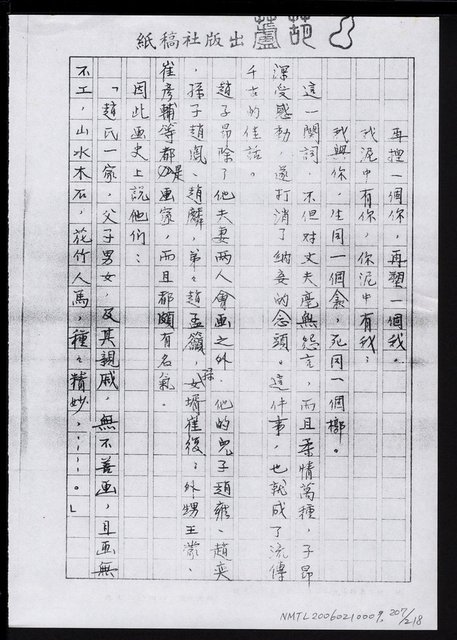 葫蘆出版社稿紙
再捏一個你，再塑一個我。
我泥中有你，你泥中有我：
我與你，生同一個衾，死同一個槨。
這一闋詞，不但对丈夫毫無怨言，而且柔情萬種，子昂
深受感動，遂打消了納妾的念頭。這件事，也就成了流傳
千古的佳話。
趙子昂除了他夫妻兩人會画之外，他的兒子趙雍、趙奕
，孫子趙鳳、趙麟，弟々趙孟籲，孫女婿崔復；外甥王濛、
崔彥輔等都是画家，而且都頗有名氣。
因此画史上說他們：
「趙氏一家，父子男女，及其親戚，無不善画，且画無
不工，山水木石，花竹人馬，種々精妙，……。」
NMTL20060210009, 207/218